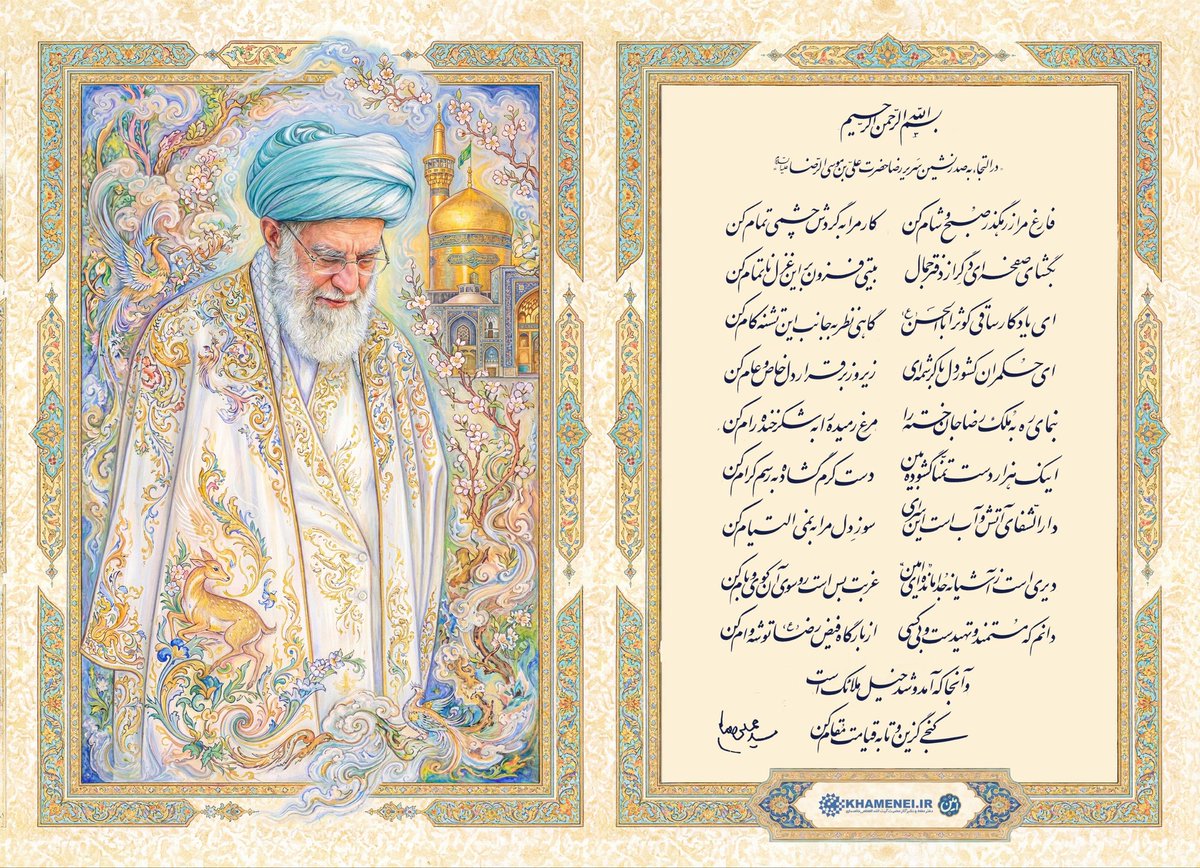 بسم الله الرحمن الرحیم
در التجاء به صدرنشین سریر رضا حضرت علی بن موسی الرضا علیه‌السلام
فارغ مرا ز رهگذر صبح و شام کن کار مرا به گردش چشمی تمام کن
بگشای صفحه‌ای دگر از دفتر جمال بیتی فزون بر این غزل ناتمام کن
ای یادگار ساقی کوثر اباالحسن (ع) گاهی نظر به جانب این تشنه کام کن
ای حکمران کشور دل با کرشمه‌ای زیر و زبر قرار دل خاص و عام کن
بنمای ره به ملک رضا جان خسته را مرغ رمیده را به شکرخنده رام کن
اینک هزار دست تمنا گشوده بین دست کرم گشاده به رسم کرام کن
دارالشفای آتش و آب است این سرای سوز دل مرا به نمی التیام کن
دیری است ز آشیانه جدا مانده‌ای امین غربت بس است رو سوی آن کوی و بام کن
دانم که مستمند و تهیدست و بی کسی از بارگاه فیض رضا (ع) توشه وام کن
وآنجا که آمد و شد خیل ملائک است
کنجی گزین و تا به قیامت مقام کن
KHAMENEI.IR